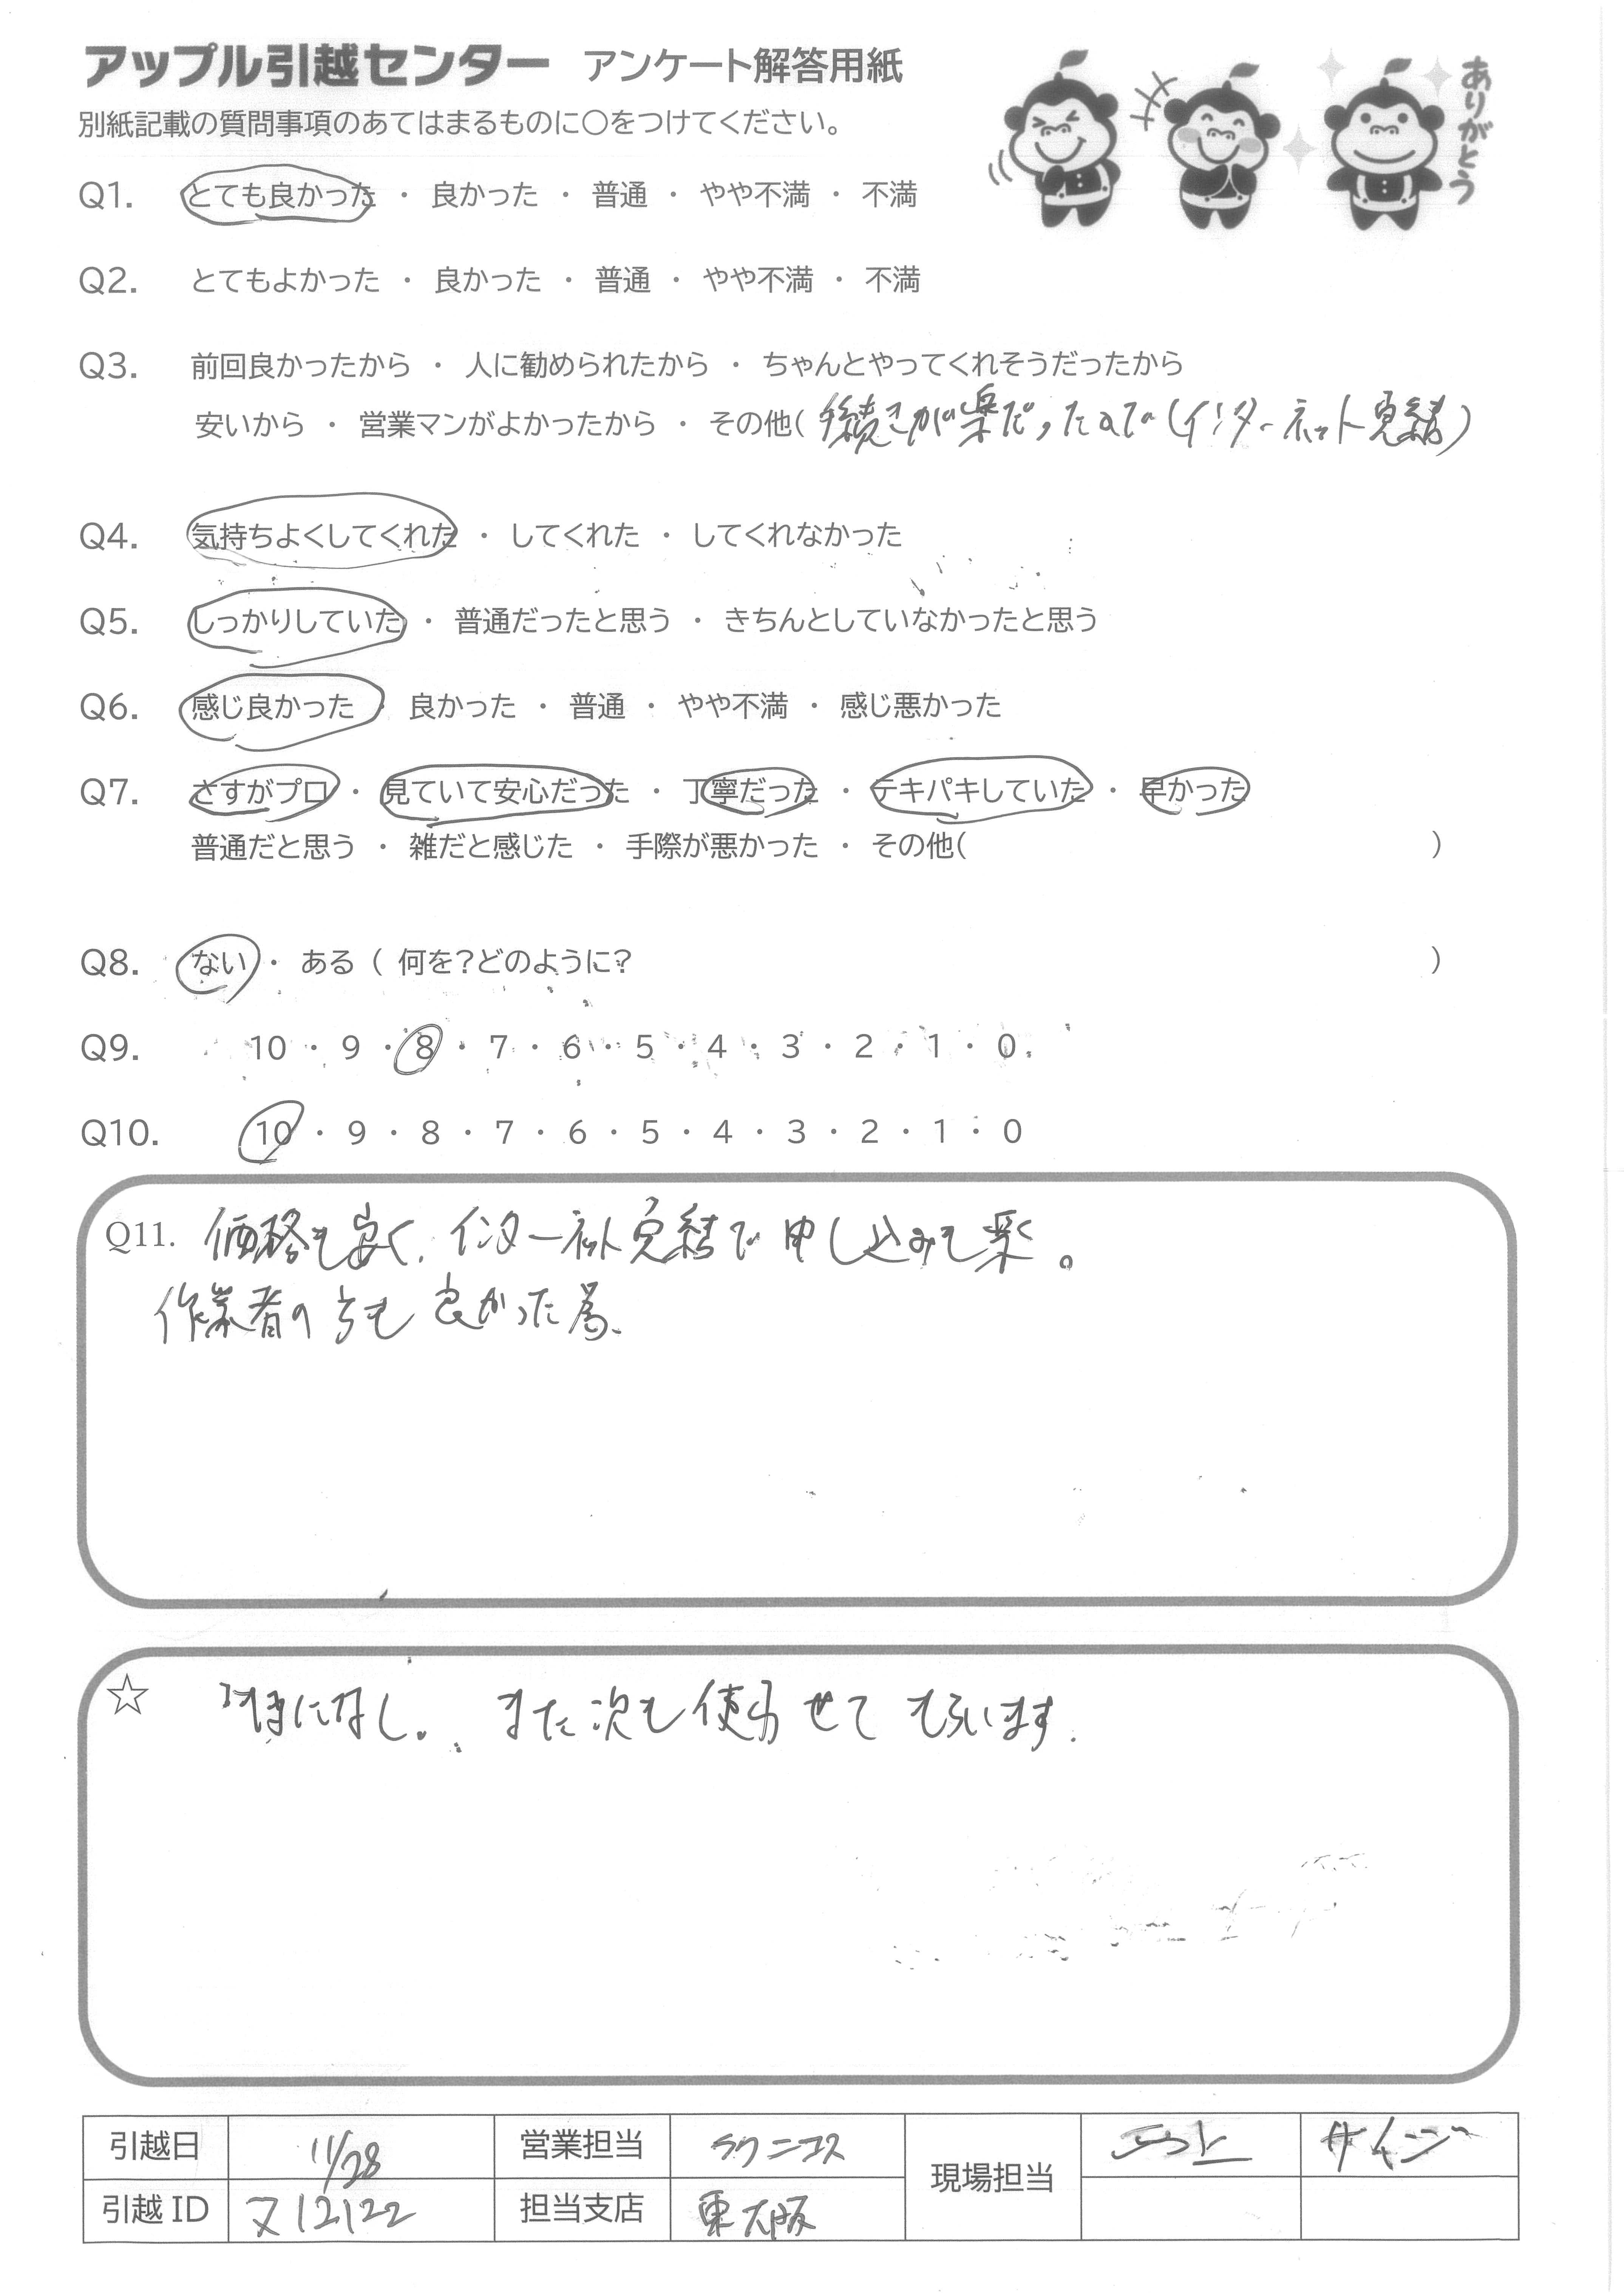 アップル引越センター アンケート解答用紙
ありがとう
別紙記載の質問事項のあてはまるものに〇をつけてください。
Q1. とても良かった ・ 良かった ・ 普通 ・ やや不満 ・ 不満
Q2. とてもよかった ・ 良かった ・ 普通 ・ やや不満 ・ 不満
Q3. 前回良かったから ・ 人に勧められたから ・ ちゃんとやってくれそうだったから
安いから ・ 営業マンがよかったから ・ その他( 手続きが楽だったので(インターネット完結)
Q4. 気持ちよくしてくれた ・ してくれた ・ してくれなかった
Q5. しっかりしていた ・ 普通だったと思う ・ きちんとしていなかったと思う
Q6. 感じ良かった ・ 良かった ・ 普通 ・ やや不満 ・ 感じ悪かった
Q7. さすがプロ ・ 見ていて安心だった ・ 丁寧だった ・ テキパキしていた ・ 早かった
普通だと思う ・ 雑だと感じた ・ 手際が悪かった ・ その他( )
Q8. ない ・ ある ( 何を?どのように? )
Q9. 10 ・ 9 ・ 8 ・ 7 ・ 6 ・ 5 ・ 4 ・ 3 ・ 2 ・ 1 ・ 0
Q10. 10 ・ 9 ・ 8 ・ 7 ・ 6 ・ 5 ・ 4 ・ 3 ・ 2 ・ 1 ・ 0
Q11. 価格も良く、インターネット完結で申し込みも楽。
作業者の方も良かった為、
☆ 特になし。また次も使わせてもらいます.
引越日 11/28 営業担当 ラクニコス 現場担当
引越ID ヌ12122 担当支店 東大阪